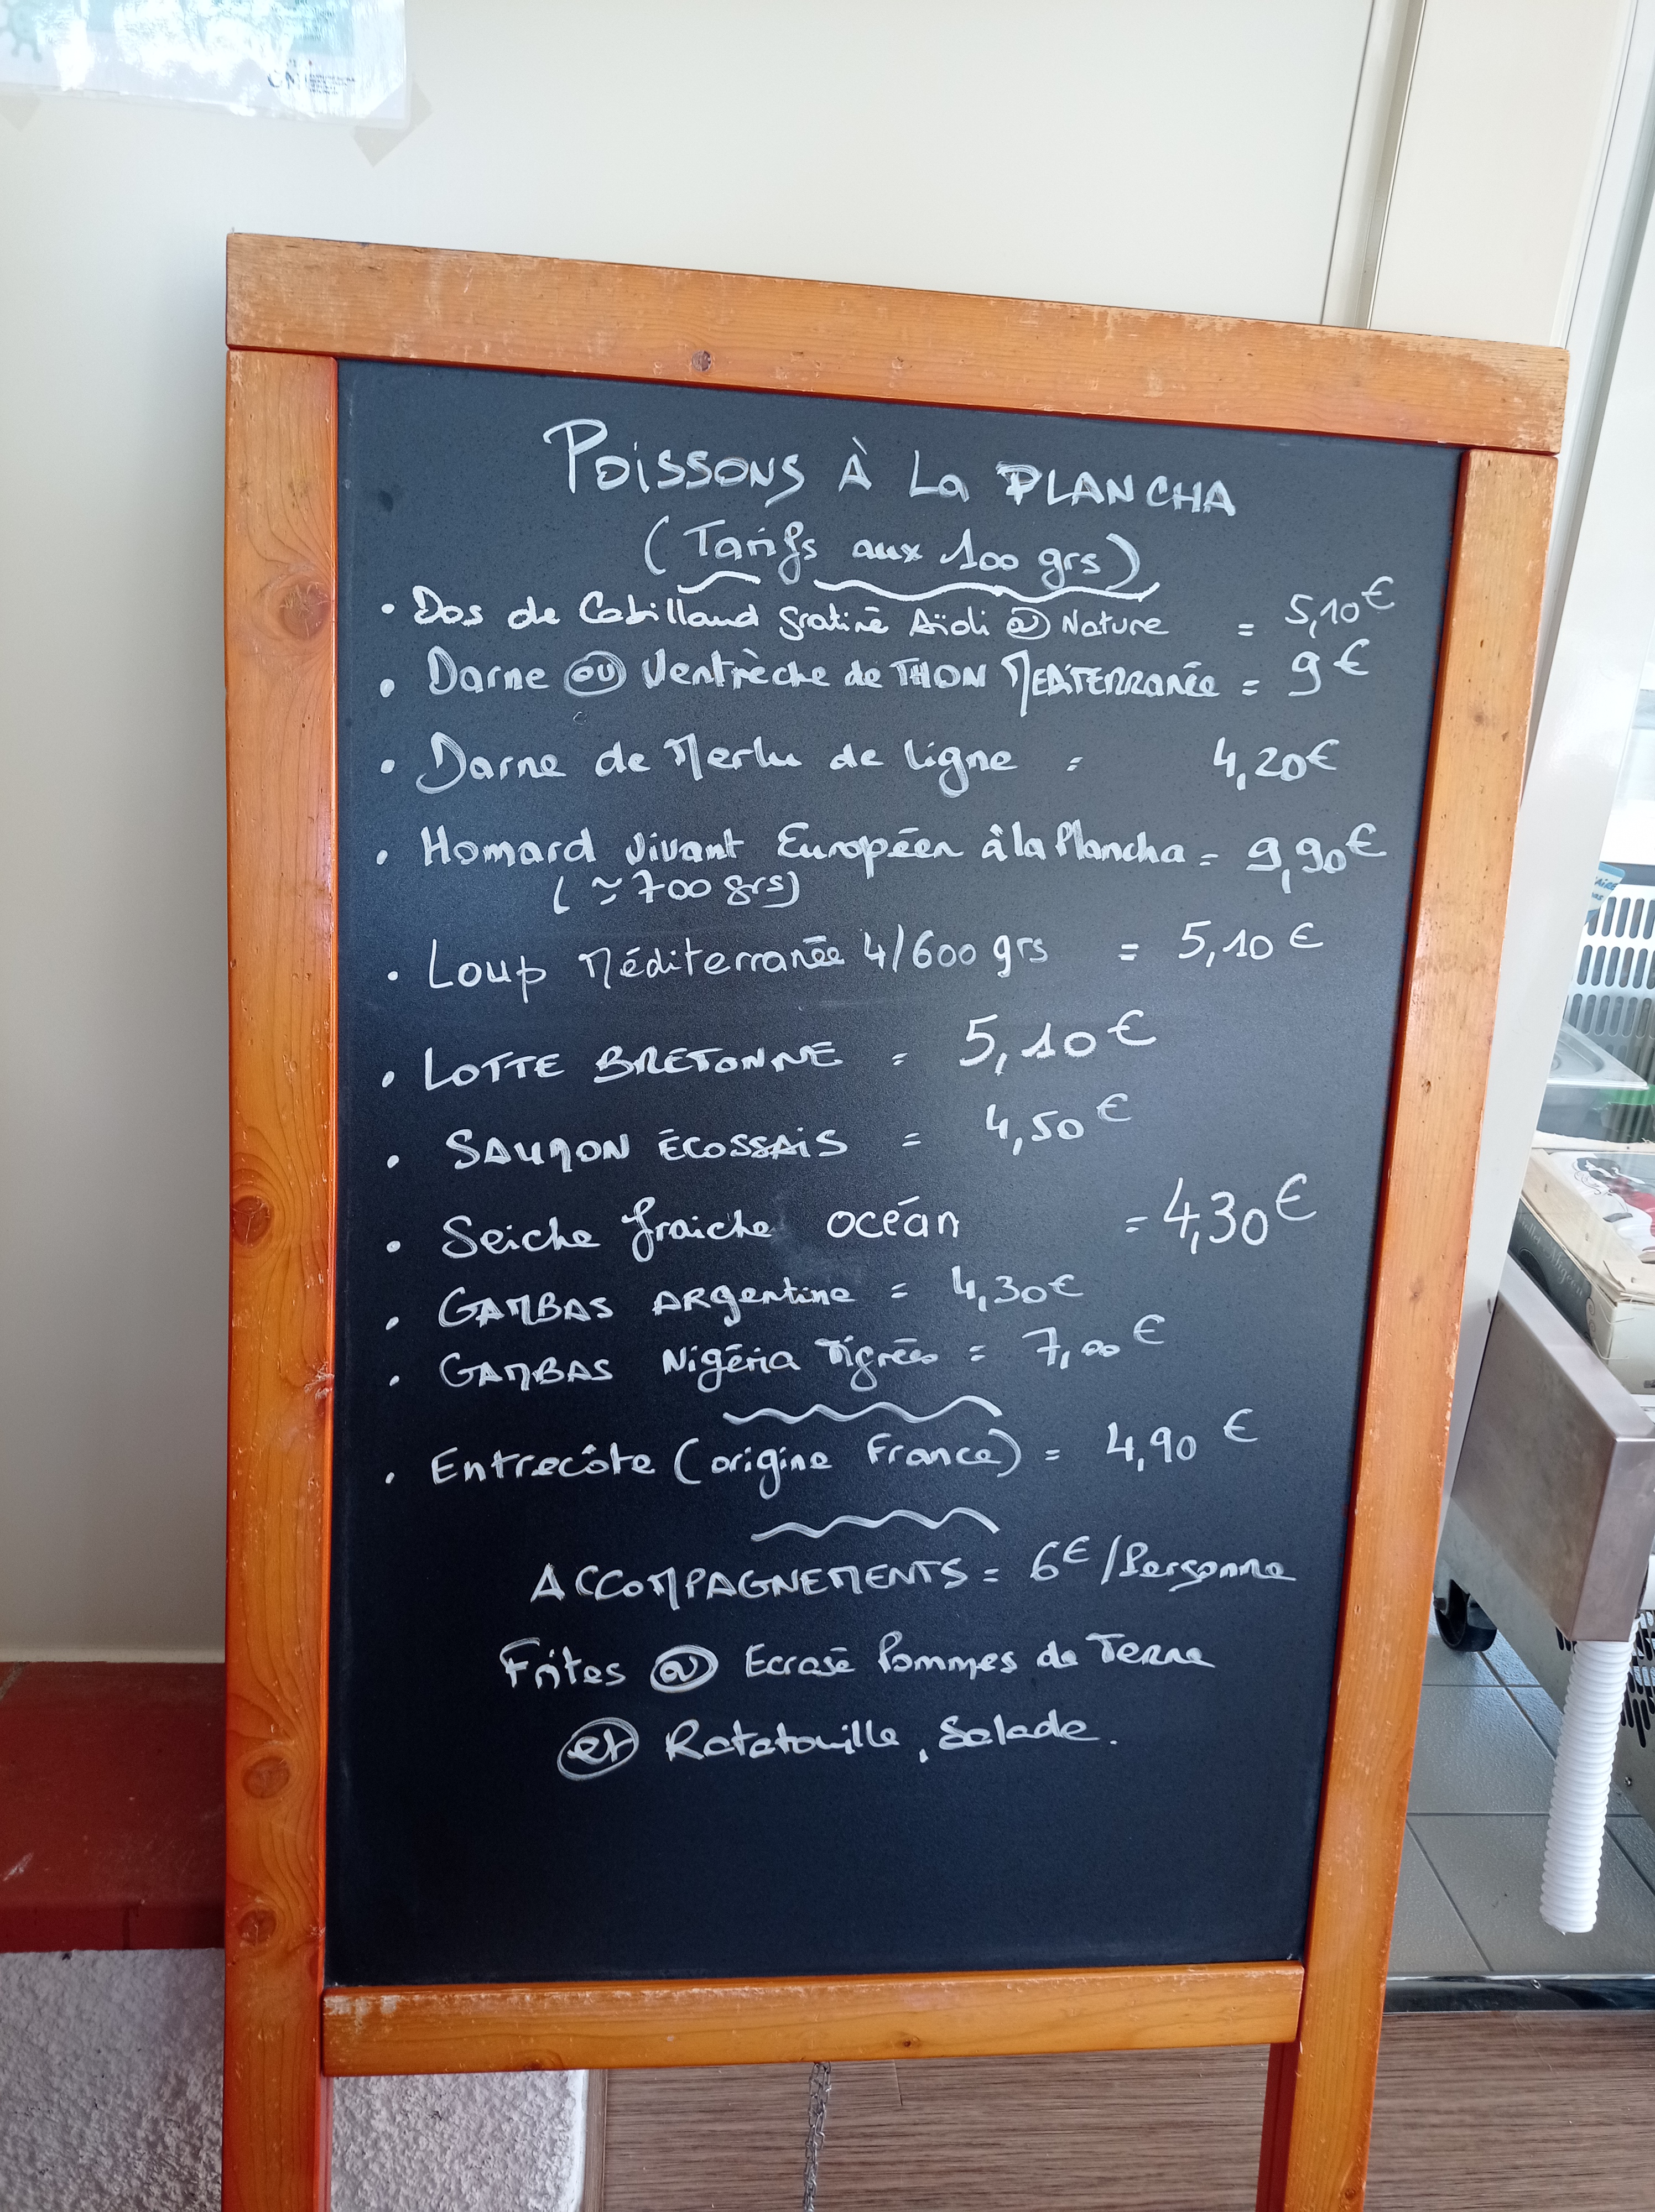 POISSONS À La PLANCHA
(Tarifs aux 100 grs)
• Dos de Cabillaud gratiné Aïoli ou Nature = 5,10€
• Darne ou Ventrèche de THON MEDITERRANée = 9€
• Darne de Merlu de ligne = 4,20€
• Homard vivant Européen à la Plancha = 9,90€
(≃700 grs)
• Loup Méditerranée 4/600 grs = 5,10€
• LOTTE BRETONNE = 5,10€
• SAUMON ÉCOSSAIS = 4,50€
• Seiche fraiche océan = 4,30€
• GAMBAS ARgentine = 4,30€
• GAMBAS Nigéria Tigrées = 7,00€
• Entrecôte (origine France) = 4,90 €
ACCOMPAGNEMENTS = 6€/Personne
Frites ou Ecrasé Pommes de Terre
et Ratatouille, Salade.